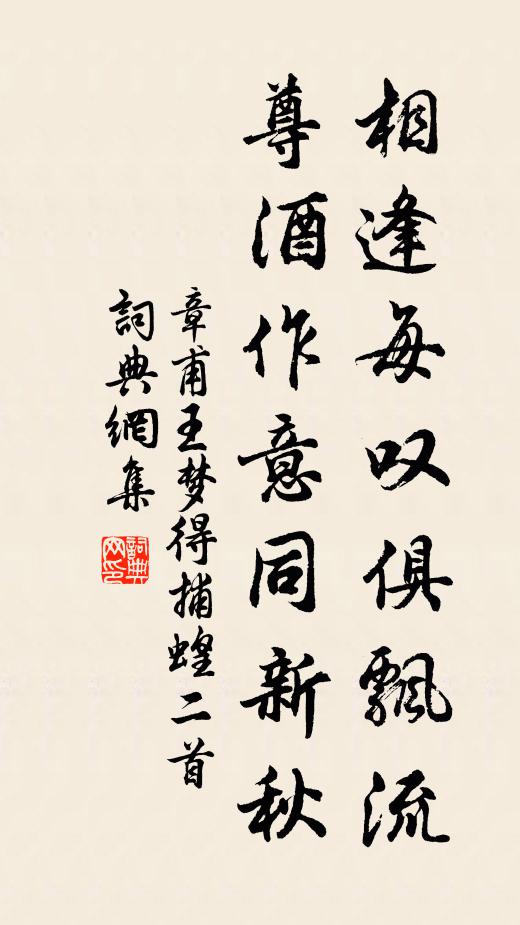 相逢每叹俱飄流
尊酒作意同新秋
章甫王梦得捕蝗二首
詞典網集
詞典网印